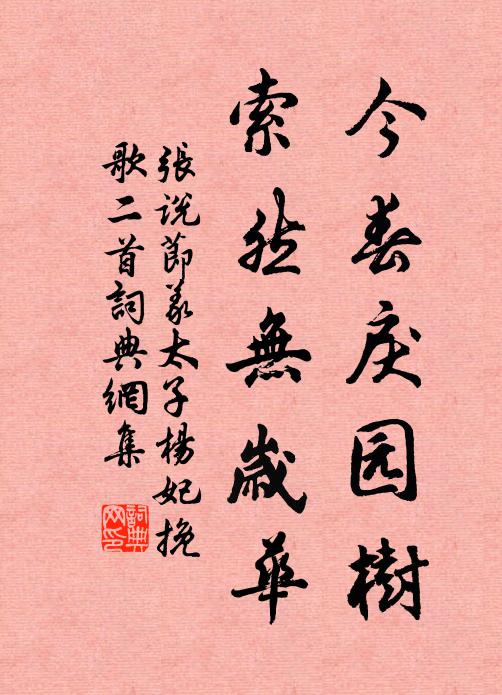 今春戾园樹
索然無歲華
張説節義太子楊妃挽
歌二首詞典網集
詞典网印